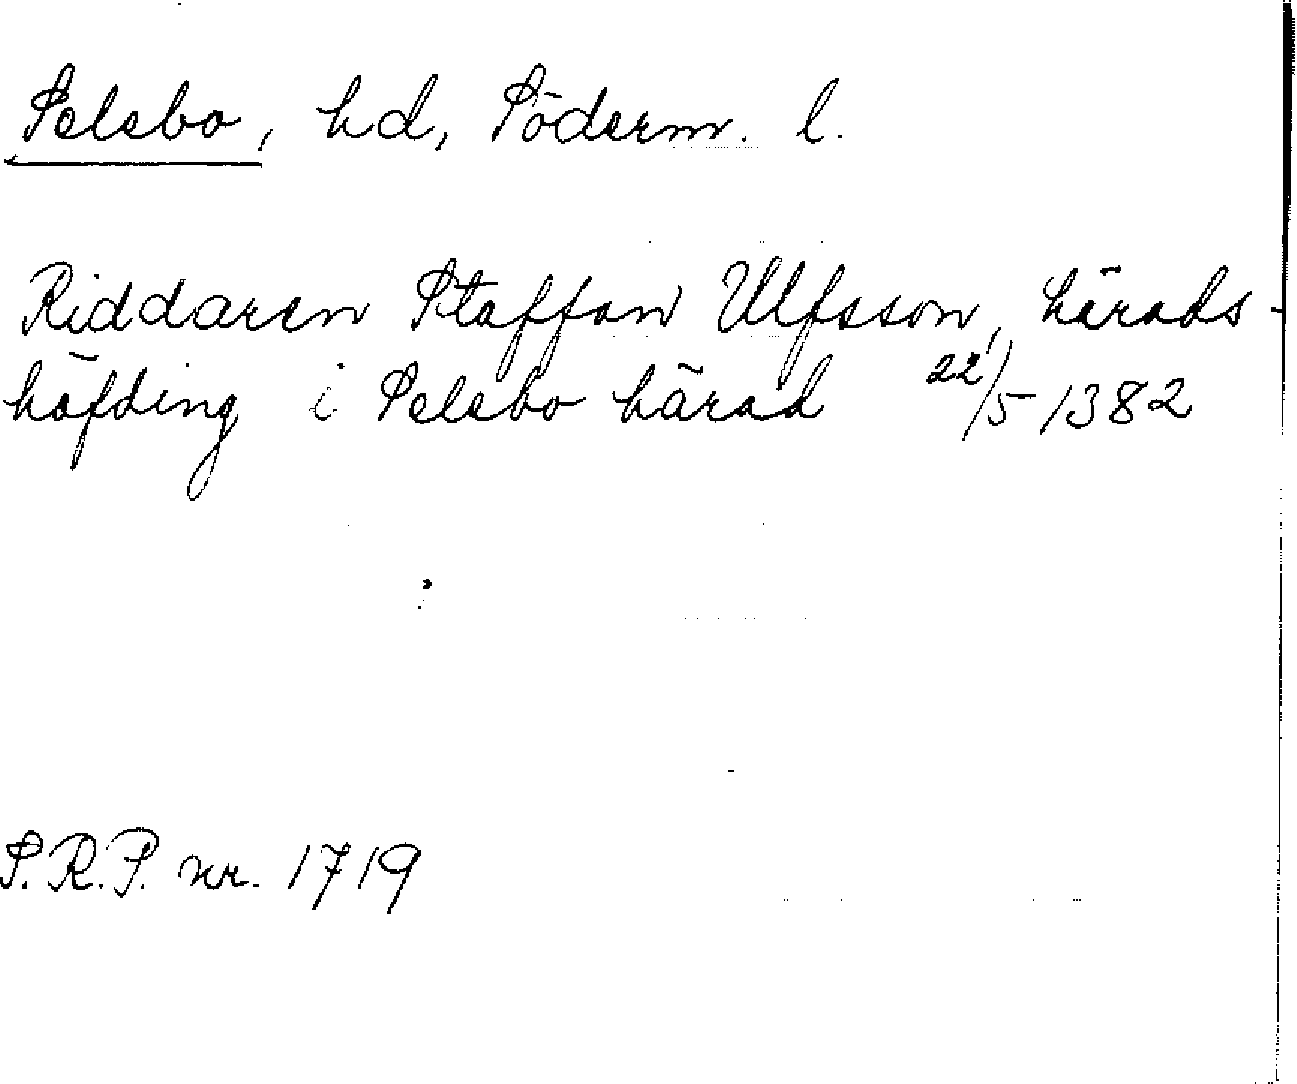 Selebo, hd, Söderm. l.
Riddaren Staffan Ulfsson, härads-
höfding i Selebo härad 22/5 1382
S.R.P. nr. 1719